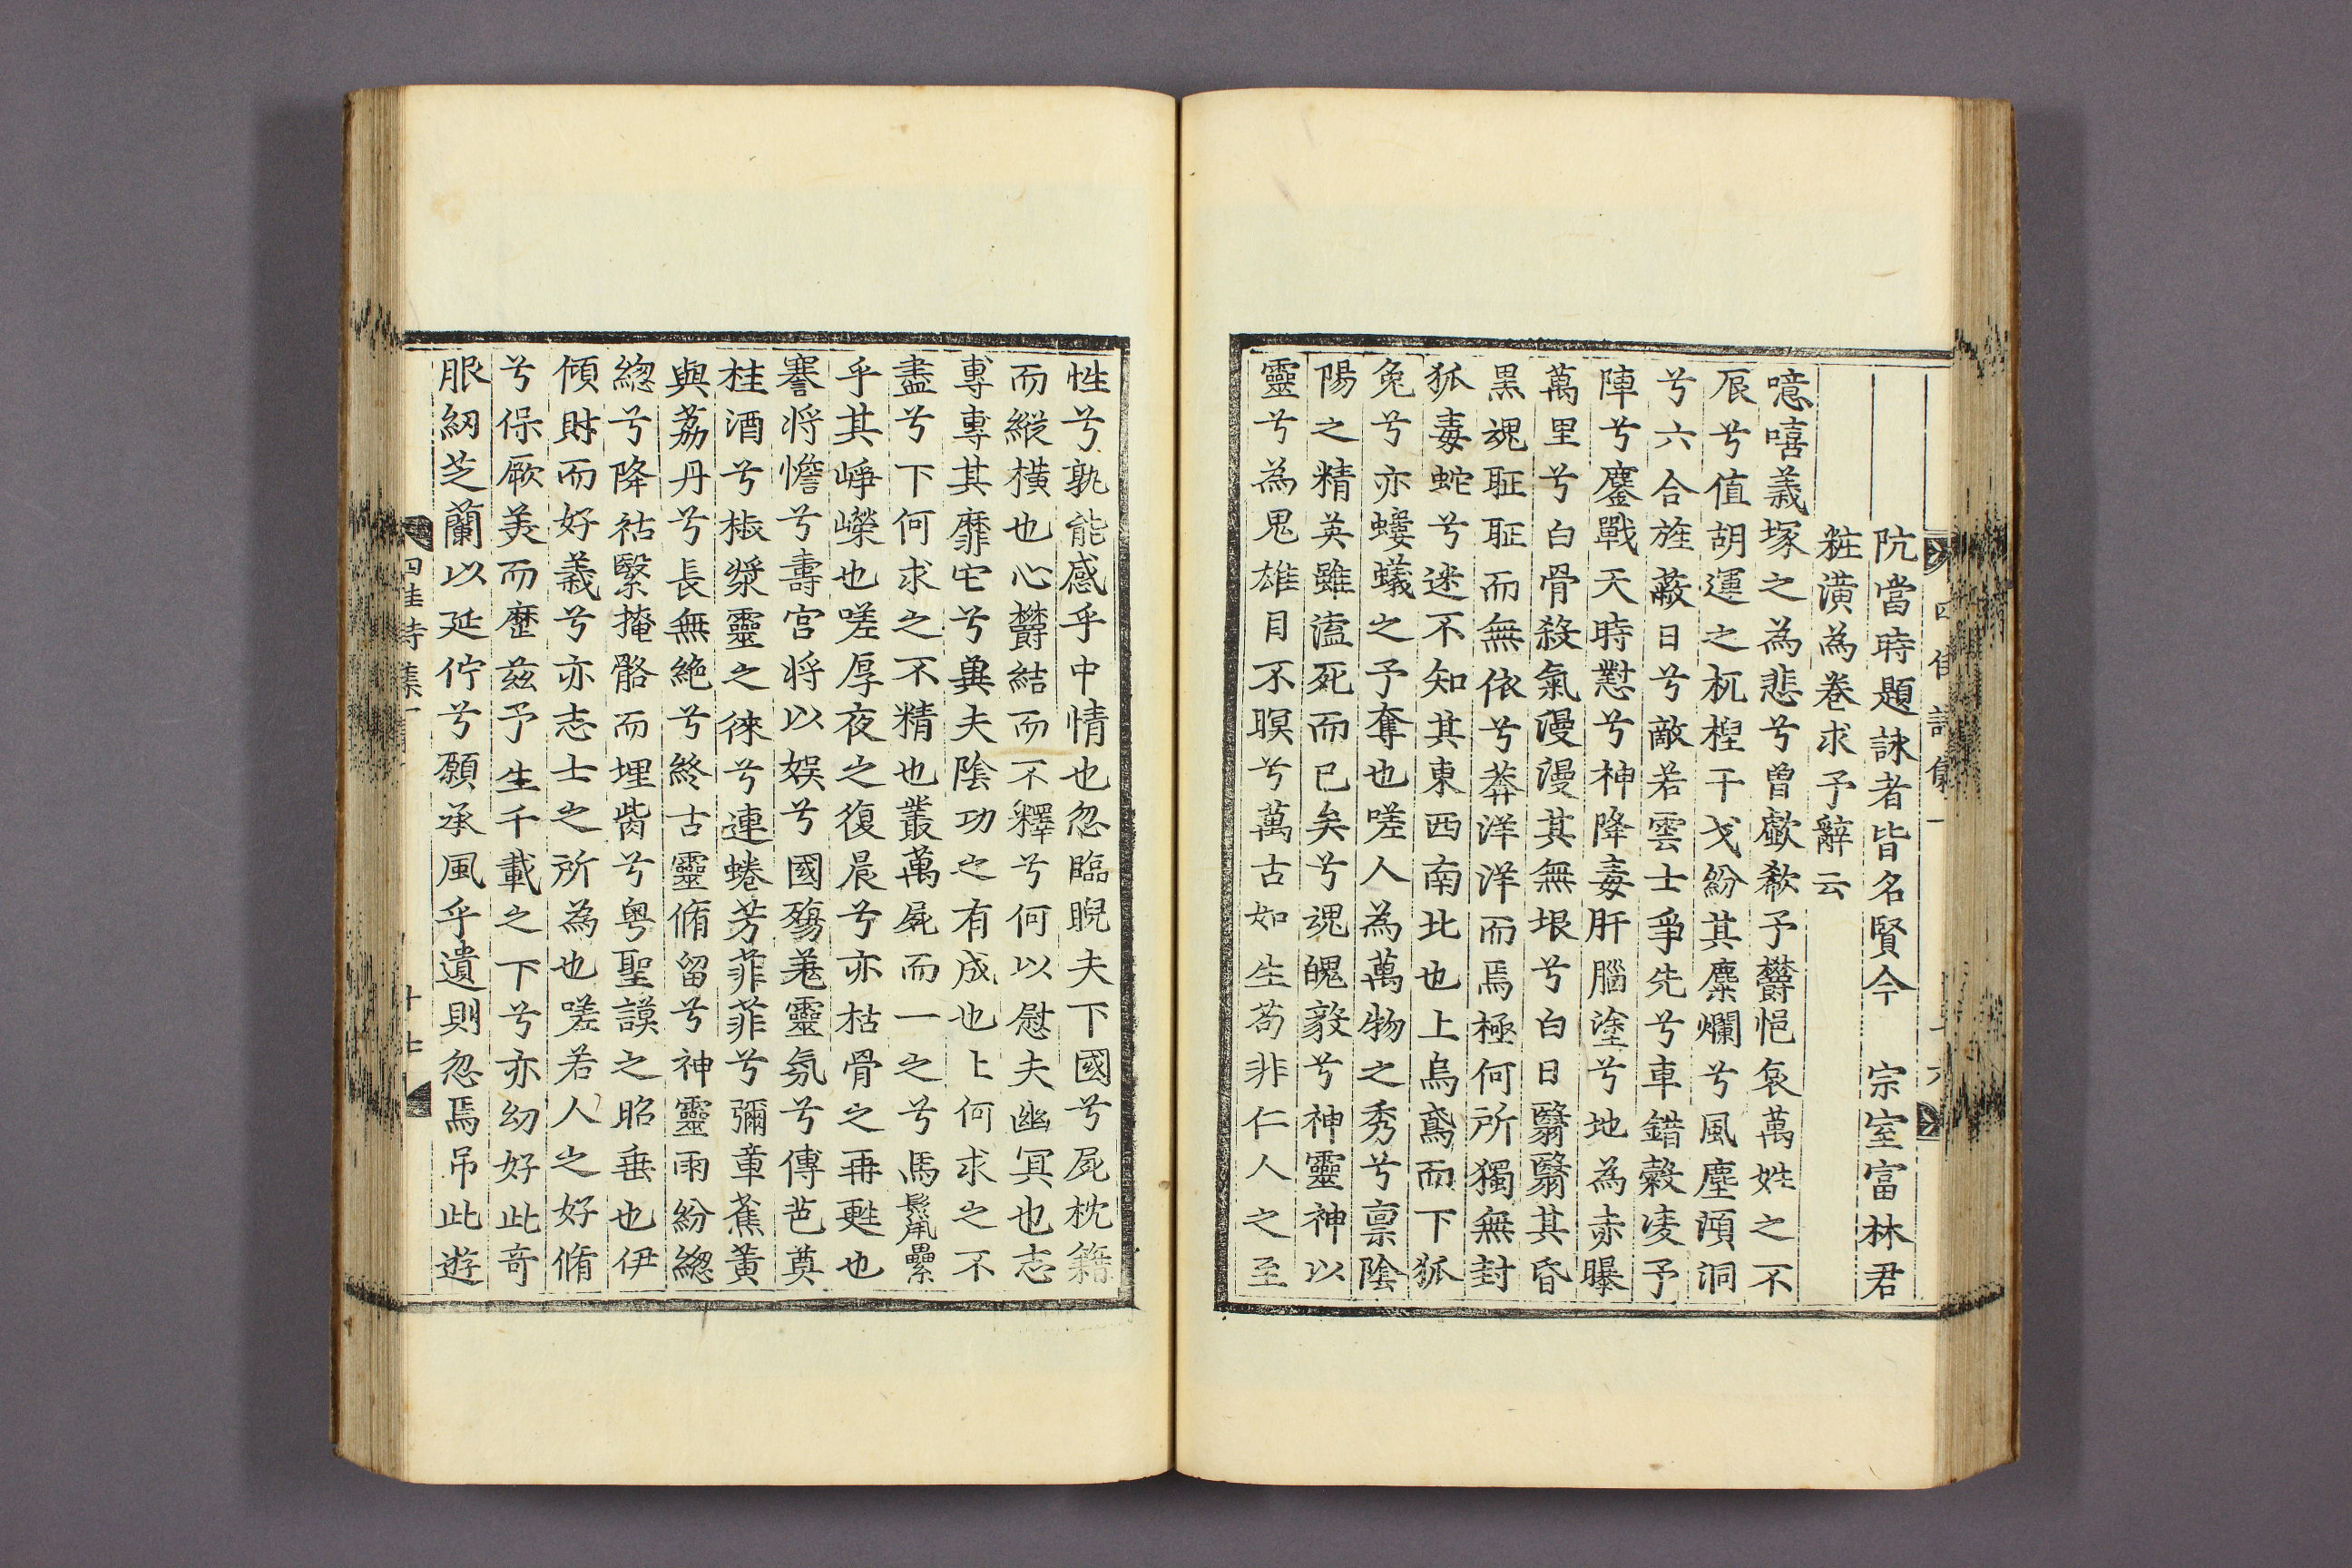 阬當時題詠者皆名賢今　宗室富林君
粧潢為卷求予辭云
噫嘻義塚之為悲兮曾歔欷予欝悒哀萬姓之不
辰兮值胡運之杌桯干戈紛其糜爛兮風塵澒洞
兮六合旌蔽日兮敵若雲士爭先兮車錯轂凌予
陣兮鏖戰天時懟兮神降毒肝腦塗兮地為赤曝
萬里兮白骨殺氣漫漫其無垠兮白日翳翳其昏
黑魂䀮䀮而無依兮莽洋洋而焉極何所獨無封
狐毒蛇兮迷不知其東西南北也上烏鳶而下狐
兔兮亦螻蟻之予奪也嗟人為萬物之秀兮禀陰
陽之精英雖溘死而已矣兮魂魄毅兮神靈神以
靈兮為鬼雄目不瞑兮萬古如生茍非仁人之至
性兮孰能感乎中情也忽臨睨夫下國兮屍枕籍
而縱橫也心欝結而不釋兮何以慰夫幽冥也志
專專其靡它兮冀夫陰功之有成也上何求之不
盡兮下何求之不精也叢萬屍而一之兮馬鬛閈纍
乎其崢嶸也嗟厚夜之復晨兮亦枯骨之再甦也
謇將憺兮壽宮將以娛兮國殤羗靈氛兮傳芭奠
桂酒兮椒漿靈之徠兮連蜷芳菲菲兮彌章蕉黃
與荔丹兮長無絶兮終古靈脩留兮神靈雨紛緫
緫兮降祜繄掩骼而埋胔兮粤聖謨之昭垂也伊
傾財而好義兮亦志士之所為也嗟若人之好脩
兮保厥美而歷茲予生千載之下兮亦幼好此奇
服紉芝蘭以延佇兮願承風乎遺則忽焉吊此遊